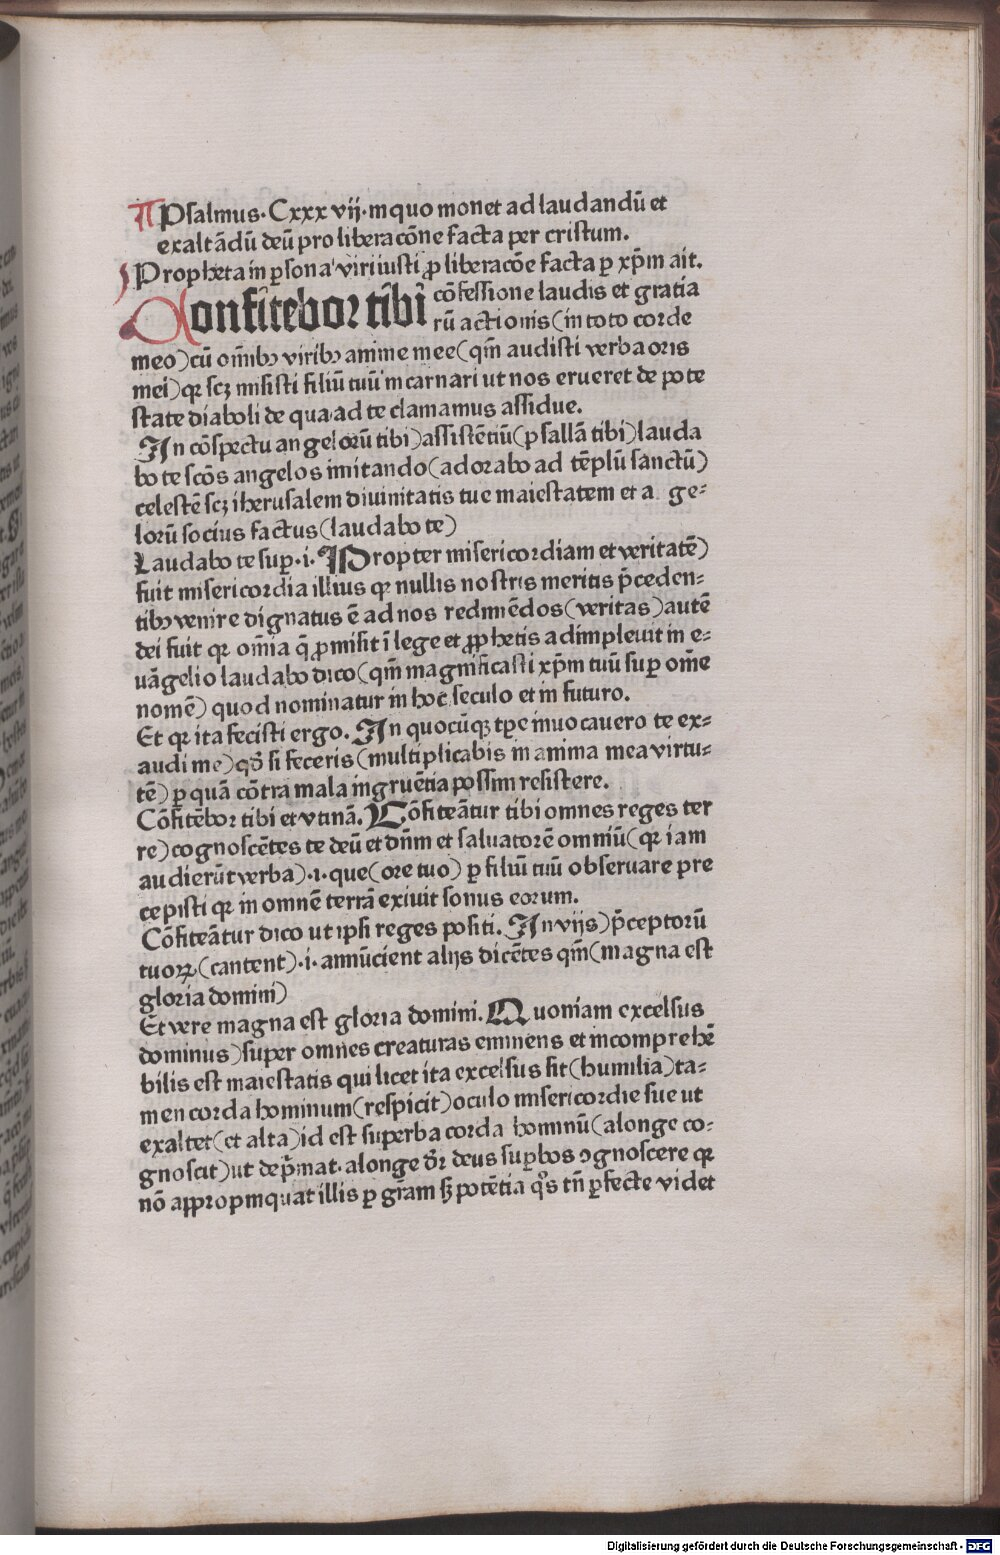 Psalmus. Cxxxvij. in quo monet ad laudandū et
exaltādū deū pro liberacōne facta per cristum.
Propheta in ꝑsona viri iusti ꝓ liberacōe facta ꝑ xp̄m ait.
Confitebor tibi cōfessione laudis et gratia
rū actionis (in toto corde
meo) cū om̄ibꝫ viribꝫ anime mee (qm̄ audisti verba oris
mei) qꝛ scꝫ misisti filiū tuū incarnari ut nos erueret de pote
state diaboli de qua ad te clamamus assidue.
In cōspectu angelorū tibi) assistētiū (psallā tibi) lauda
bo te scōs angelos imitando (adorabo ad tēplū sanctū)
celestē scꝫ iherusalem diuinitatis tue maiestatem et a ge-
lorū socius factus (laudabo te)
Laudabo te suꝑ .i. Propter misericordiam et veritatē)
fuit misericordia illius qꝛ nullis nostris meritis p̄ceden-
tibꝫ venire dignatus ē ad nos redimēdos (veritas) autē
dei fuit qꝛ om̄ia q̄ ꝓmisit ī lege et ꝓphetis adimpleuit in e-
uāgelio laudabo dico (qm̄ magnificasti xp̄m tuū suꝑ om̄e
nomē) quod nominatur in hoc seculo et in futuro.
Et qꝛ ita fecisti ergo. In quocūqꝫ tꝑe inuocauero te ex-
audi me) qō si feceris (multiplicabis in anima mea virtu-
tē) ꝑ quā cōtra mala ingruētia possim resistere.
Cōfitēbor tibi et vtinā. Cōfiteātur tibi omnes reges ter
re) cognoscētes te deū et dn̄m et saluatorē omniū (qꝛ iam
audierūt verba) .i. que (ore tuo) ꝑ filiū tuū obseruare pre
cepisti qꝛ in omnē terrā exiuit sonus eorum.
Cōfiteātur dico ut ipsi reges positi. In vijs) p̄ceptorū
tuoꝝ (cantent) .i. annūcient alijs dicētes qm̄ (magna est
gloria domini)
Et vere magna est gloria domini. Quoniam excelsus
dominus) super omnes creaturas eminens et incomprehē
bilis est maiestatis qui licet ita excelsus sit (humilia) ta-
men corda hominum (respicit) oculo misericordie sue ut
exaltet (et alta) id est superba corda hominū (a longe co-
gnoscit) ut dep̄mat. a longe dr̄ deus suꝑbos ꝯgnoscere qꝛ
nō appropinquat illis ꝑ gr̄am sꝫ potētia qͦs tn̄ ꝑfecte videt
Digitalisierung gefördert durch die Deutsche Forschungsgemeinschaft - DFG